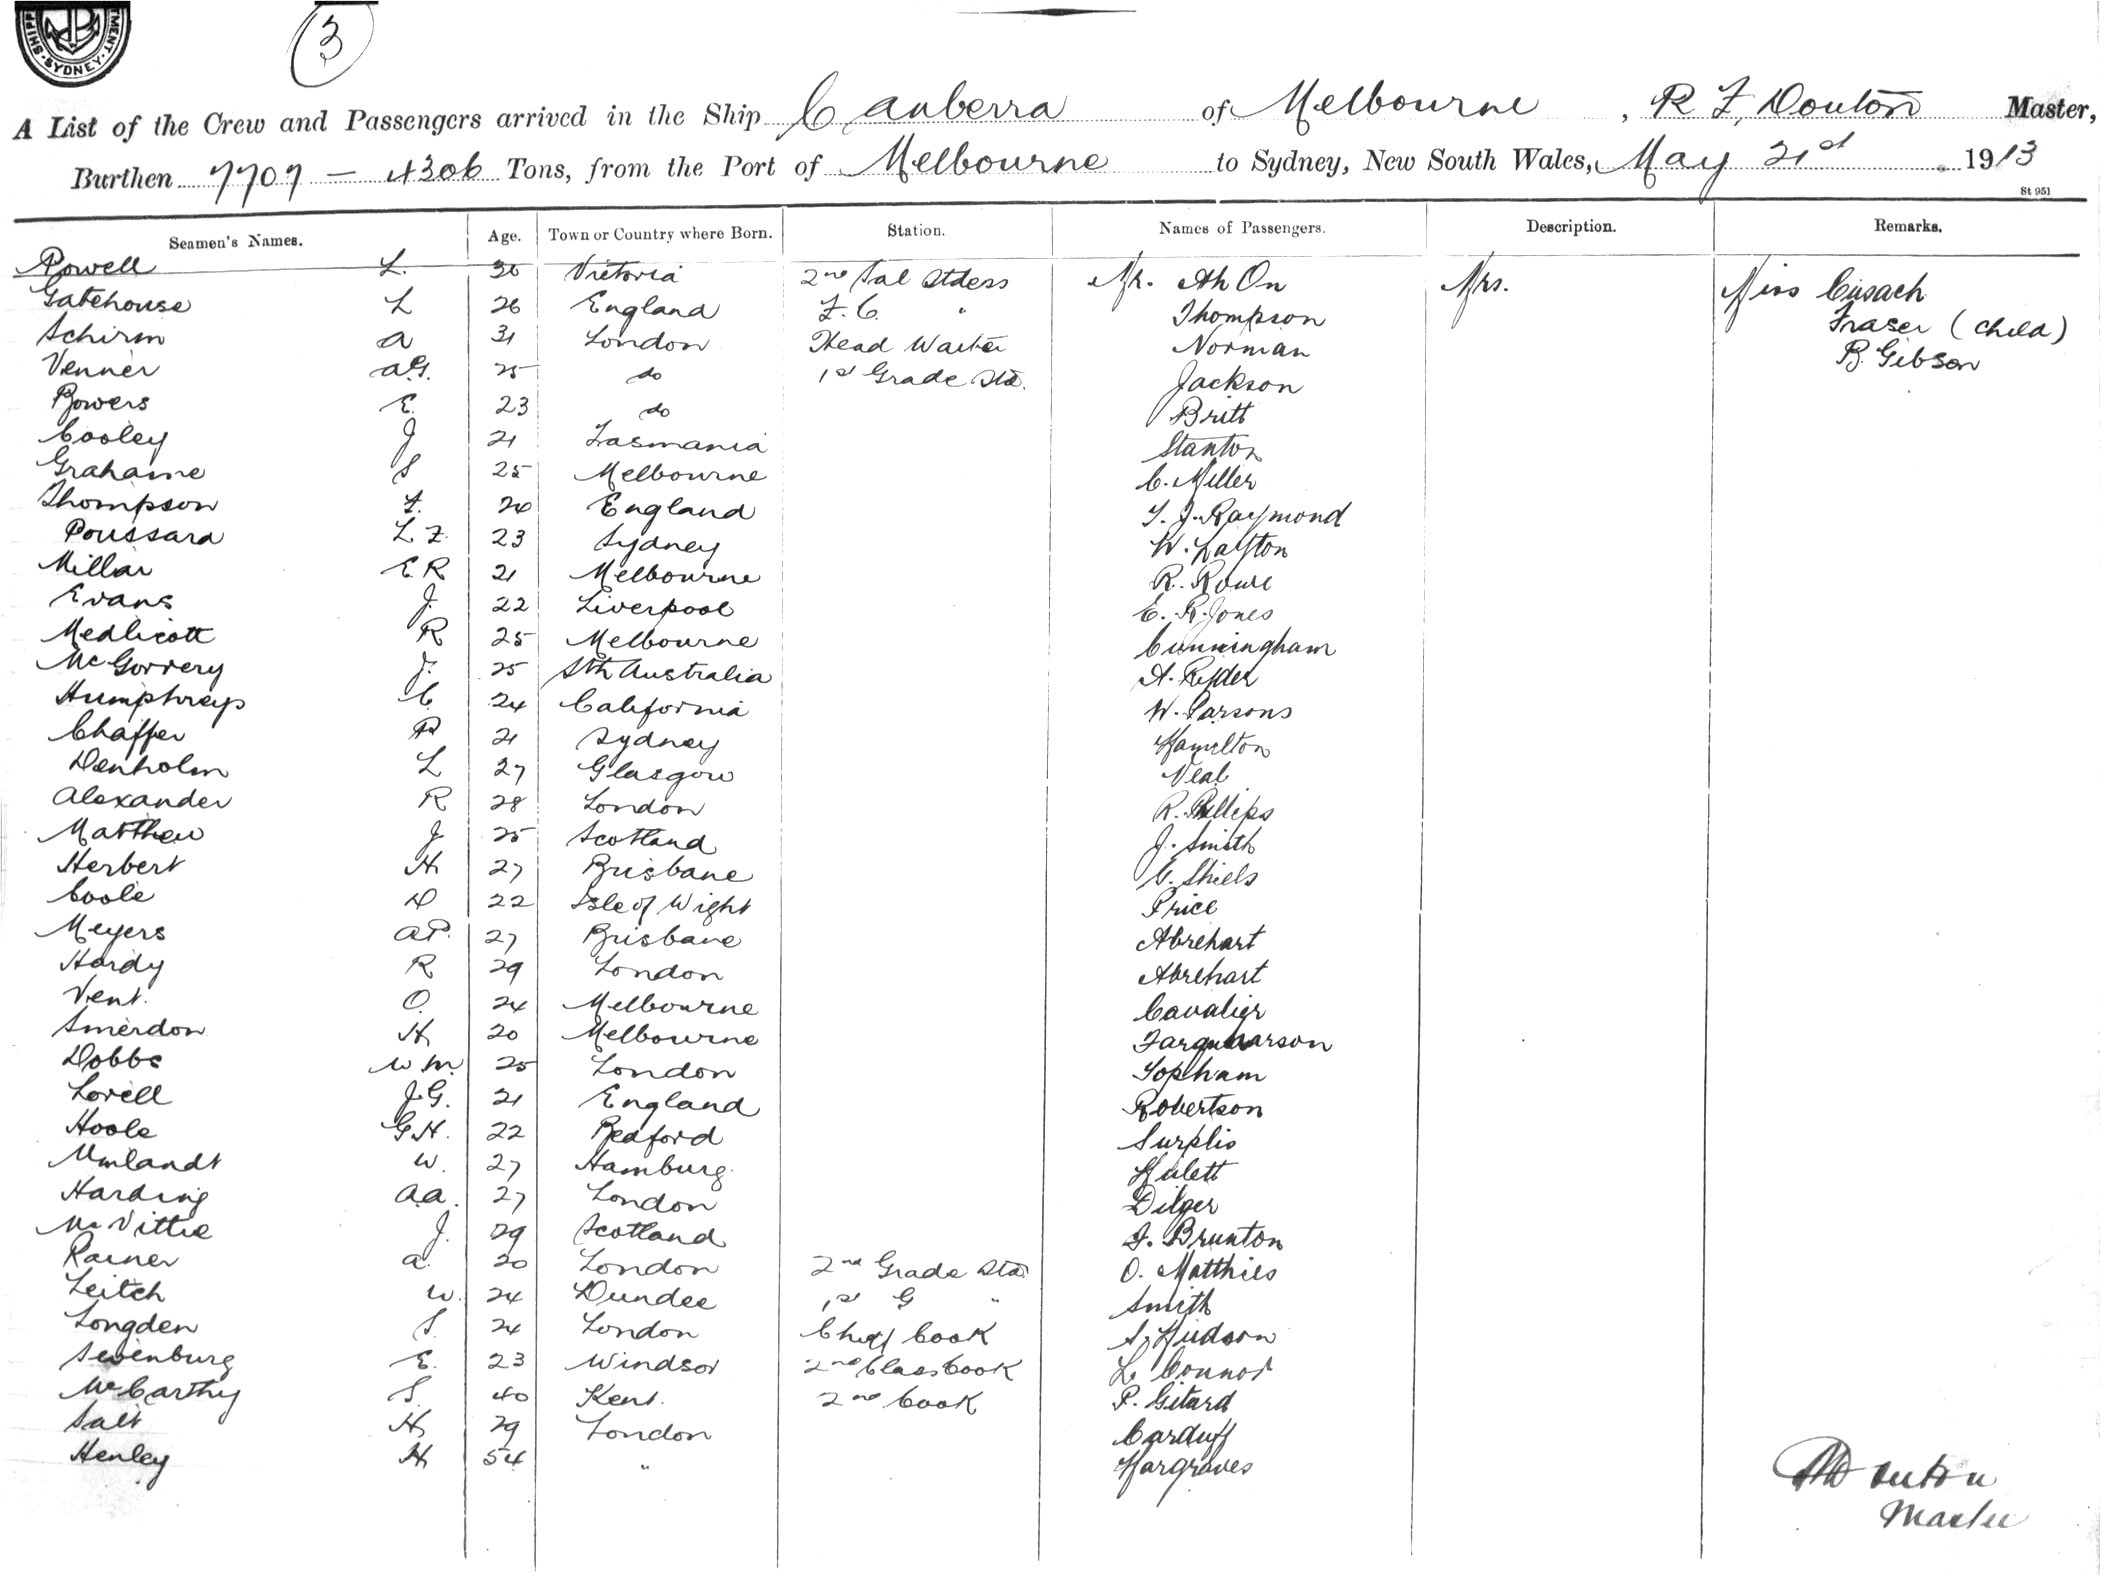 SHIPP MENT. SYDNEY
3
A List of the Crew and Passengers arrived in the Ship Canberra of Melbourne, R F. Douton Master,
Burthen 7707 — 4306 Tons, from the Port of Melbourne to Sydney, New South Wales, May 21st 1913
St 951
Seamen's Names. Age. Town or Country where Born. Station. Names of Passengers. Description. Remarks.
Powell L. 36 Victoria 2nd Sal Stdess Mr. Ah On Mrs. Miss Cusach
Gatehouse L 26 England F. C. " Thompson Fraser (child)
Schirm A 31 London Head Waiter Norman B. Gibson
Venner A.G. 25 do 1st Grade Std. Jackson
Bowers E. 23 do Britt
Cooley J 21 Tasmania Stanton
Grahame S 25 Melbourne C. Miller
Thompson F. 20 England T. J. Raymond
Poussard L. F. 23 Sydney W. Layton
Millar E.R 21 Melbourne R. Rowe
Evans J. 22 Liverpool E. R. Jones
Medlicott R 25 Melbourne Cunningham
McGorrery J. 25 Sth Australia A. Ryder
Humphreys C 24 California W. Parsons
Chaffer R 21 Sydney Hamilton
Denholm L 27 Glasgow Neal
Alexander R 28 London R. Phillips
Matthew J 25 Scotland J. Smith
Herbert H 27 Brisbane G. Shiels
Coole D 22 Isle of Wight Price
Meyers A.P. 27 Brisbane Abrehart
Hardy R 29 London Abrehart
Vent. O. 24 Melbourne Cavalier
Smerdon H 20 Melbourne Farquharson
Dobbs W.M. 25 London Topham
Lovell J.G. 21 England Robertson
Hoole G.H. 22 Bedford Surplis
Umlandt W. 27 Hamburg. Hulett
Harding A.A. 27 London Dilger
McVittie J. 29 Scotland F. Brunton
Rainer A. 20 London 2nd Grade Std O. Matthies
Leitch W. 24 Dundee 1st G " Smith
Longden S. 24 London Chief Cook S. Hudson
Sevenburg E. 23 Windsor 2nd Class Cook L. Connor
McCarthy S. 40 Kent. 2nd Cook P. Gitard
Salt H 29 London Carduff
Henley H 54 " Hargraves
Douton
Master